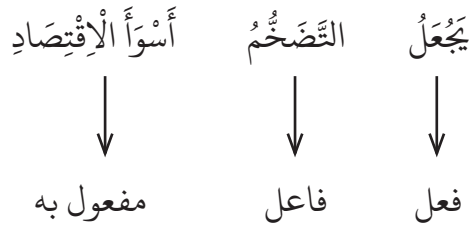 يَجْعَلُ التَّضَخُّمُ أَسْوَأَ الْاِقْتِصَادِ
فعل فاعل مفعول به